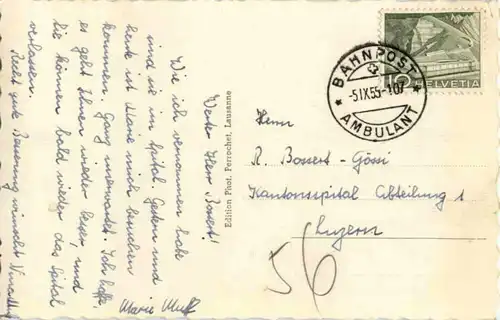 Werter Herr Bossert!
Wie ich vernommen habe
sind sie im Spital. Gestern und
heute ist Marie mich besuchen
kommen. Ganz unerwartet. Ich hoffe,
es geht Ihnen wieder besser und
Sie können bald wieder das Spital
verlassen.
Recht gute Besserung wünscht
Marie
Edition Phot. Perrochet, Lausanne
BAHNPOST
-5.IX.55-107
AMBULANT
10
HELVETIA
Herrn
R. Bossert-Gössi
Kantonsspital Abteilung 1
Luzern
56